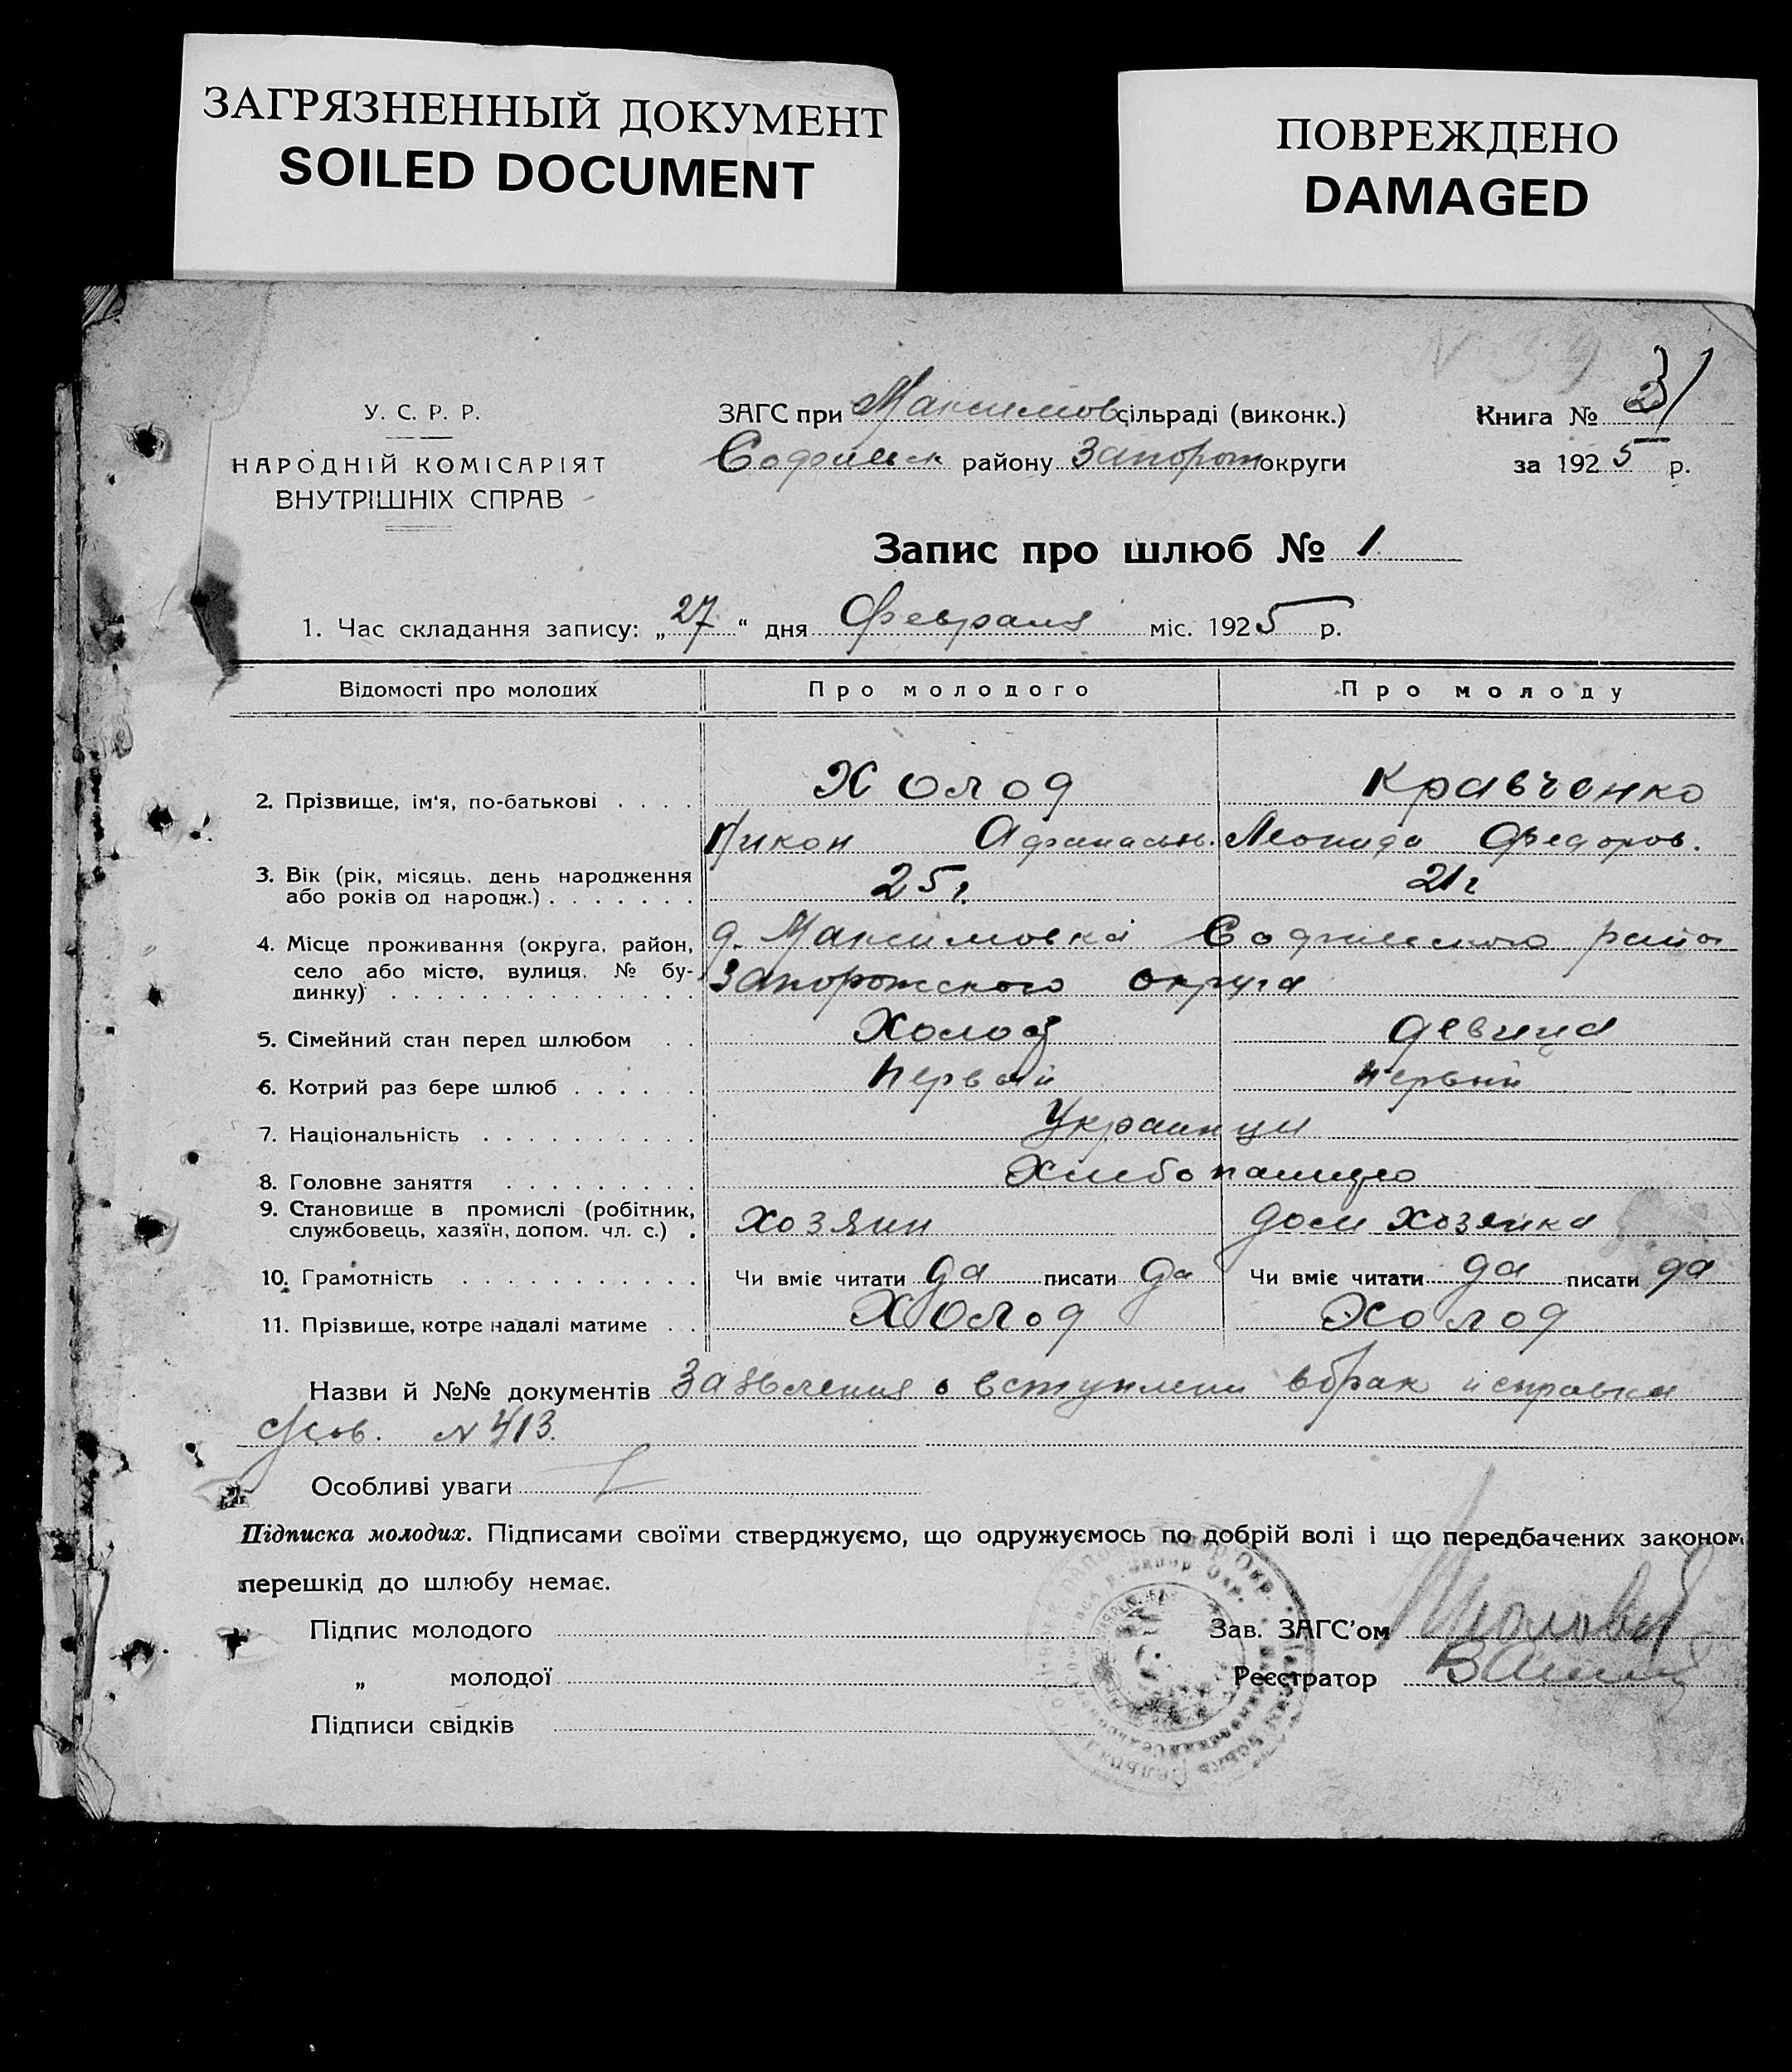 ЗАГРЯЗНЕННЫЙ ДОКУМЕНТ
SOILED DOCUMENT
ПОВРЕЖДЕНО
DAMAGED
У. С. Р. Р.
НАРОДНІЙ КОМІСАРІЯТ
ВНУТРІШНІХ СПРАВ
ЗАГС при Максимов сільраді (виконк.)
Софиевск району Запорож округи
Книга №
за 1925 р.
Запис про шлюб № 1
1. Час складання запису: „27“ дня Февраля міс. 1925 р.
Відомості про молодих Про молодого Про молоду
2. Прізвище, ім'я, по-батькові . . . . Холод Кравченко
Никон Афанасьев. Леонида Федоров.
3. Вік (рік, місяць, день народження
або років од народж.) . . . . . . . 25 г. 21 г
4. Місце проживання (округа, район, д. Максимовка Софиевского райо
село або місто, вулиця, № бу-
динку) . . . . . . . . . . . . . . Запорожского округа
5. Сімейний стан перед шлюбом . . Холост девица
6. Котрий раз бере шлюб . . . . . . первый первый
7. Національність . . . . . . . . . . Украинци
8. Головне заняття . . . . . . . . .
9. Становище в промислі (робітник,
службовець, хазяїн, допом. чл. с.) . хозяин дом хозяйка
10. Грамотність . . . . . . . . . . . Чи вміє читати да писати да Чи вміє читати да писати да
11. Прізвище, котре надалі матиме . . Холод Холод
Назви й №№ документів Заявления о вступлени в брак и справки
№ 413.
Особливі уваги
Підписка молодих. Підписами своїми стверджуємо, що одружуємось по добрій волі і що передбачених законом
перешкід до шлюбу немає.
Підпис молодого
Зав. ЗАГС'ом
„ молодої
Реєстратор
Підписи свідків